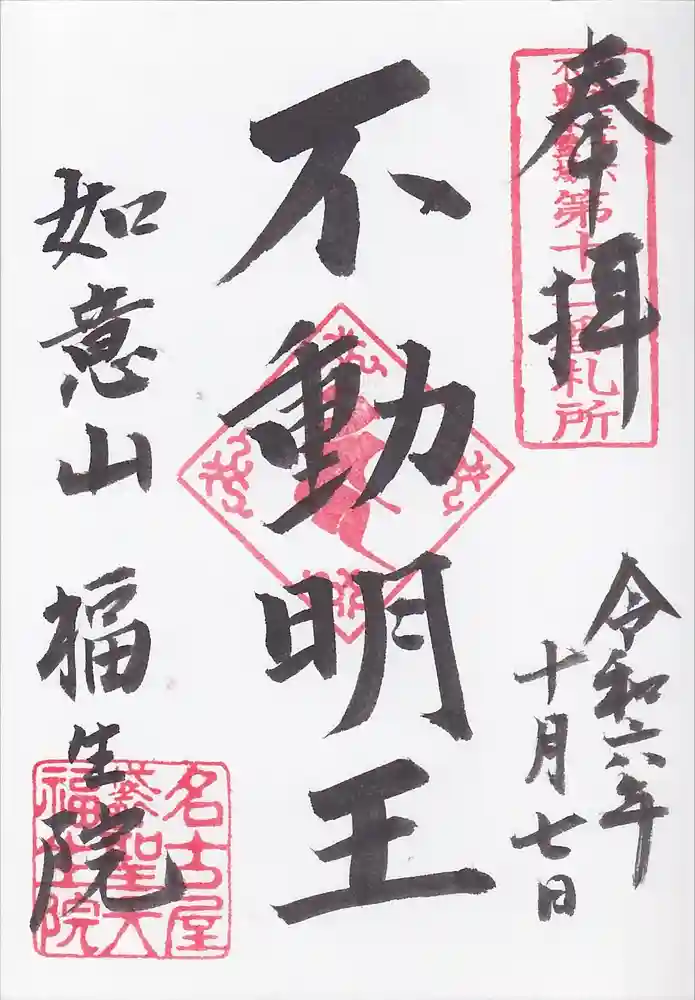 奉拝
第十二番札所
令和六年
十月七日
不動明王
如意山 福生院
名古屋
袋聖天
福生院